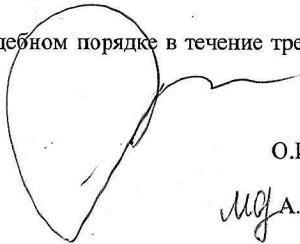 дебном порядке в течение тре
О.
А.